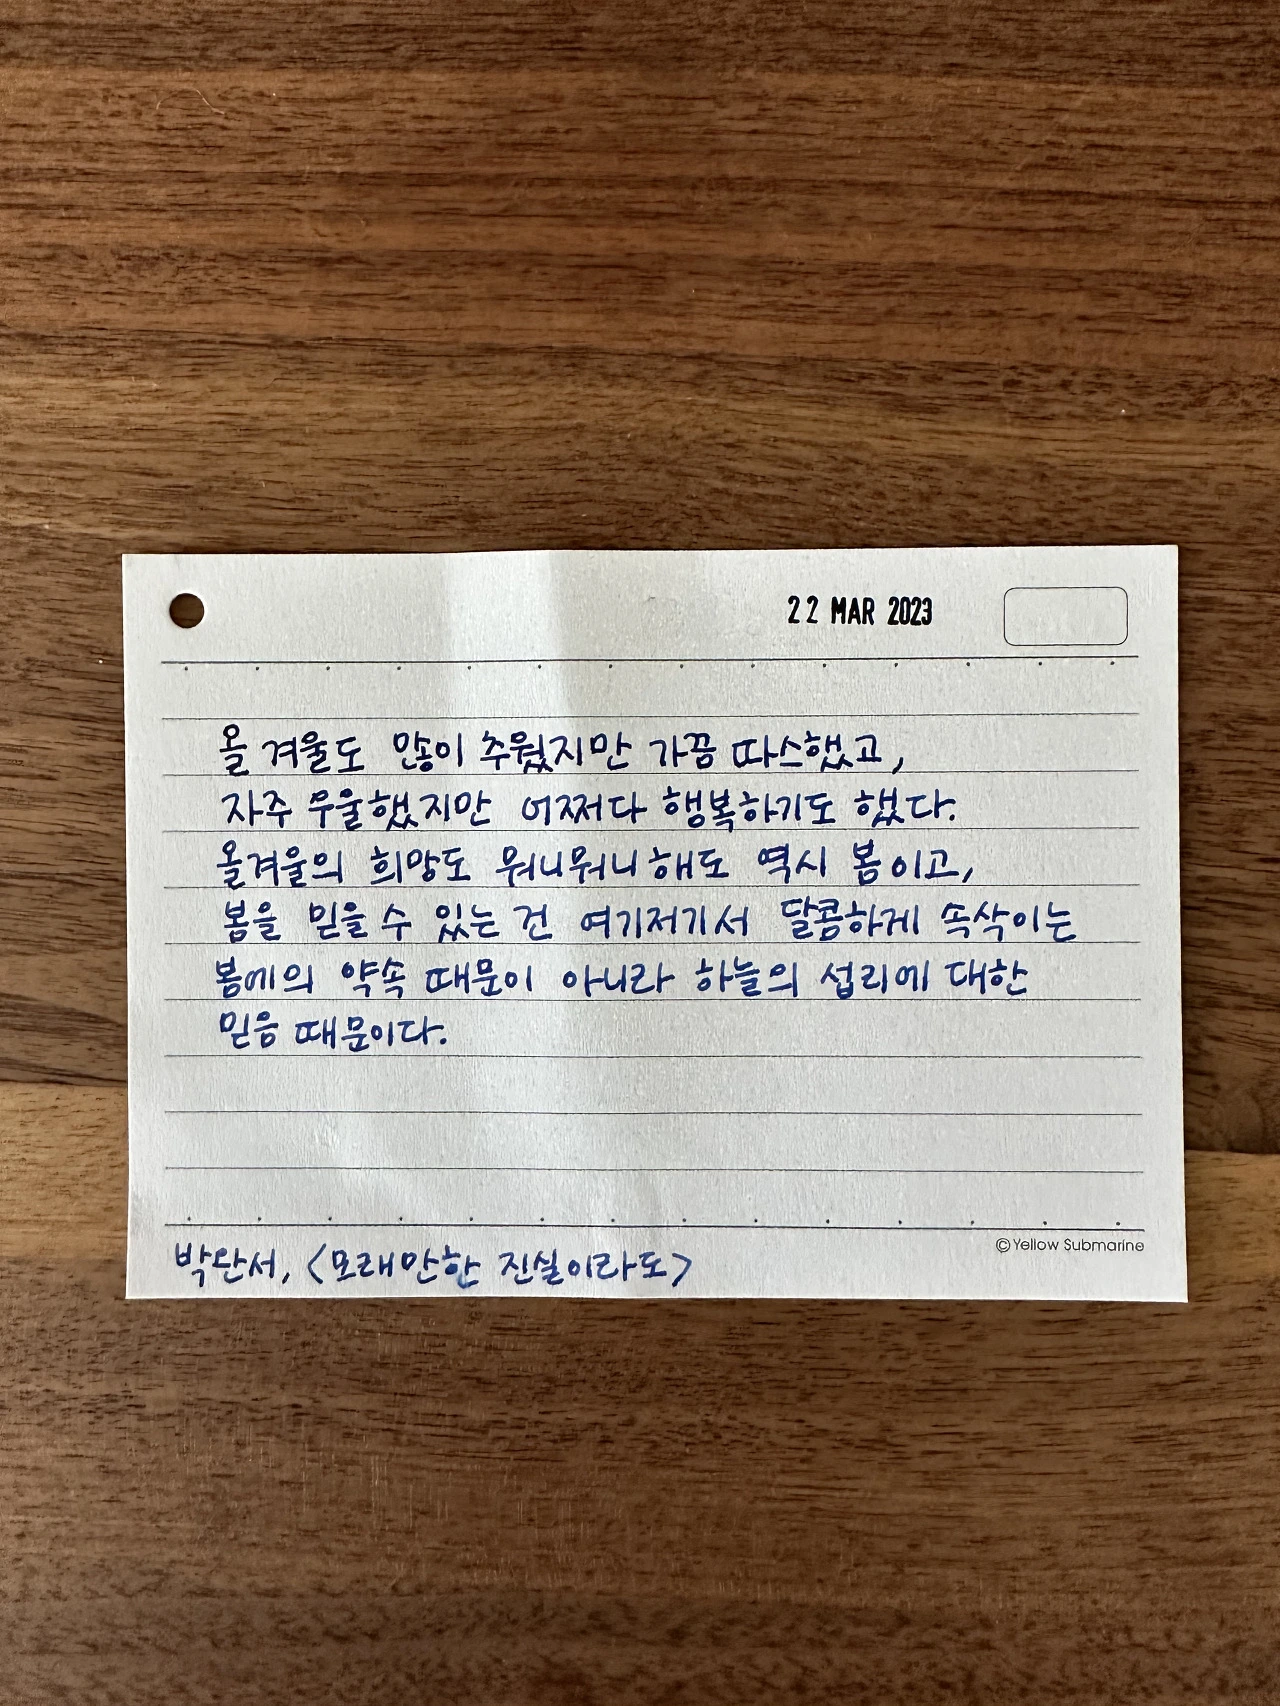 22 MAR 2023
올 겨울도 많이 추웠지만 가끔 따스했고,
자주 우울했지만 어쩌다 행복하기도 했다.
올겨울의 희망도 뭐니뭐니해도 역시 봄이고,
봄을 믿을 수 있는 건 여기저기서 달콤하게 속삭이는
봄에의 약속 때문이 아니라 하늘의 섭리에 대한
믿음 때문이다.
©Yellow Submarine
박완서, <모래만한 진실이라도>